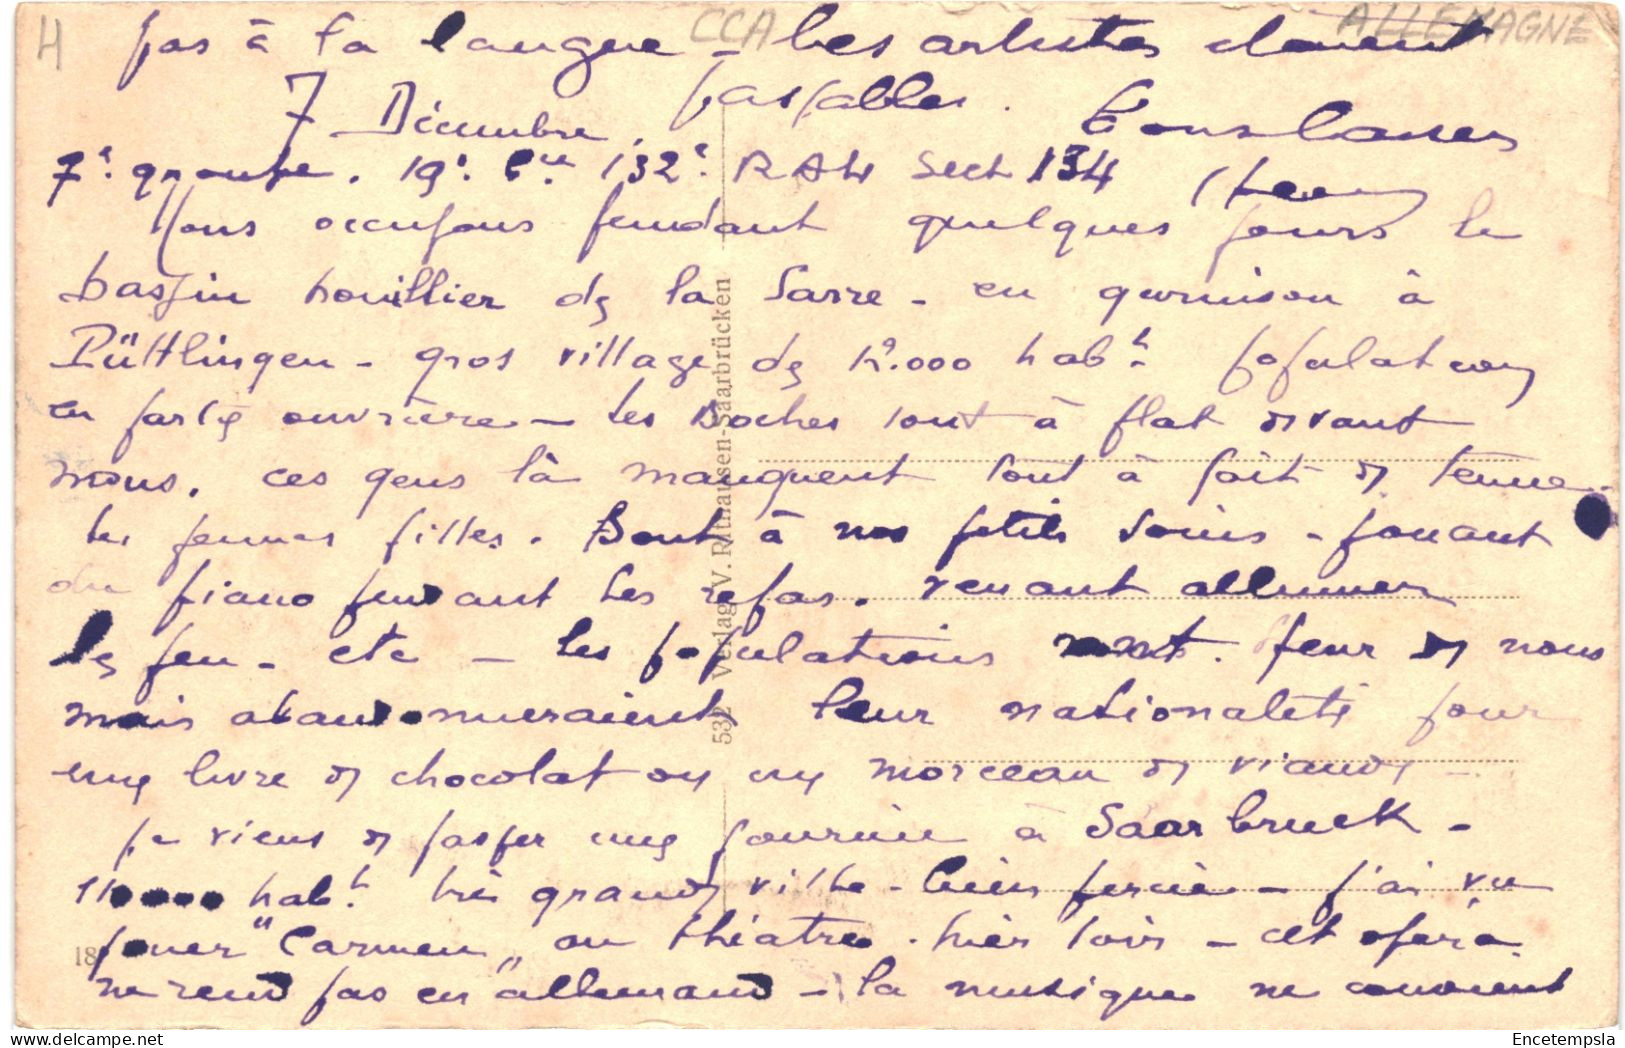 H CCA ALLEMAGNE
pas à la langue – les artistes étaient
passables.
7 Décembre. bons baisers
7e groupe. 19e Bie 132e RALH Sect 134
Nous occupons pendant quelques jours le
bassin houillier de la Sarre – en garnison à
Püttlingen – gros village de 12.000 habts population
en partie ouvrière – les Boches sont à plat devant
nous. ces gens là manquent tout à fait de tenue.
les jeunes filles. sont à nos petits soins – jouant
du piano pendant les repas. venant allumer
le feu – etc – les populations ont peur de nous
mais abandonneraient leur nationalité pour
une livre de chocolat ou un morceau de viande –
je viens de passer une journée à Saarbruck –
110000 habts très grande ville – bien – j'ai vu
jouer "Carmen" au théatre. hier soir – cet opéra
ne rend pas en allemand – la musique ne convient
532 Verlag V. Rithausen-Saarbrücken
18
Encetempsla